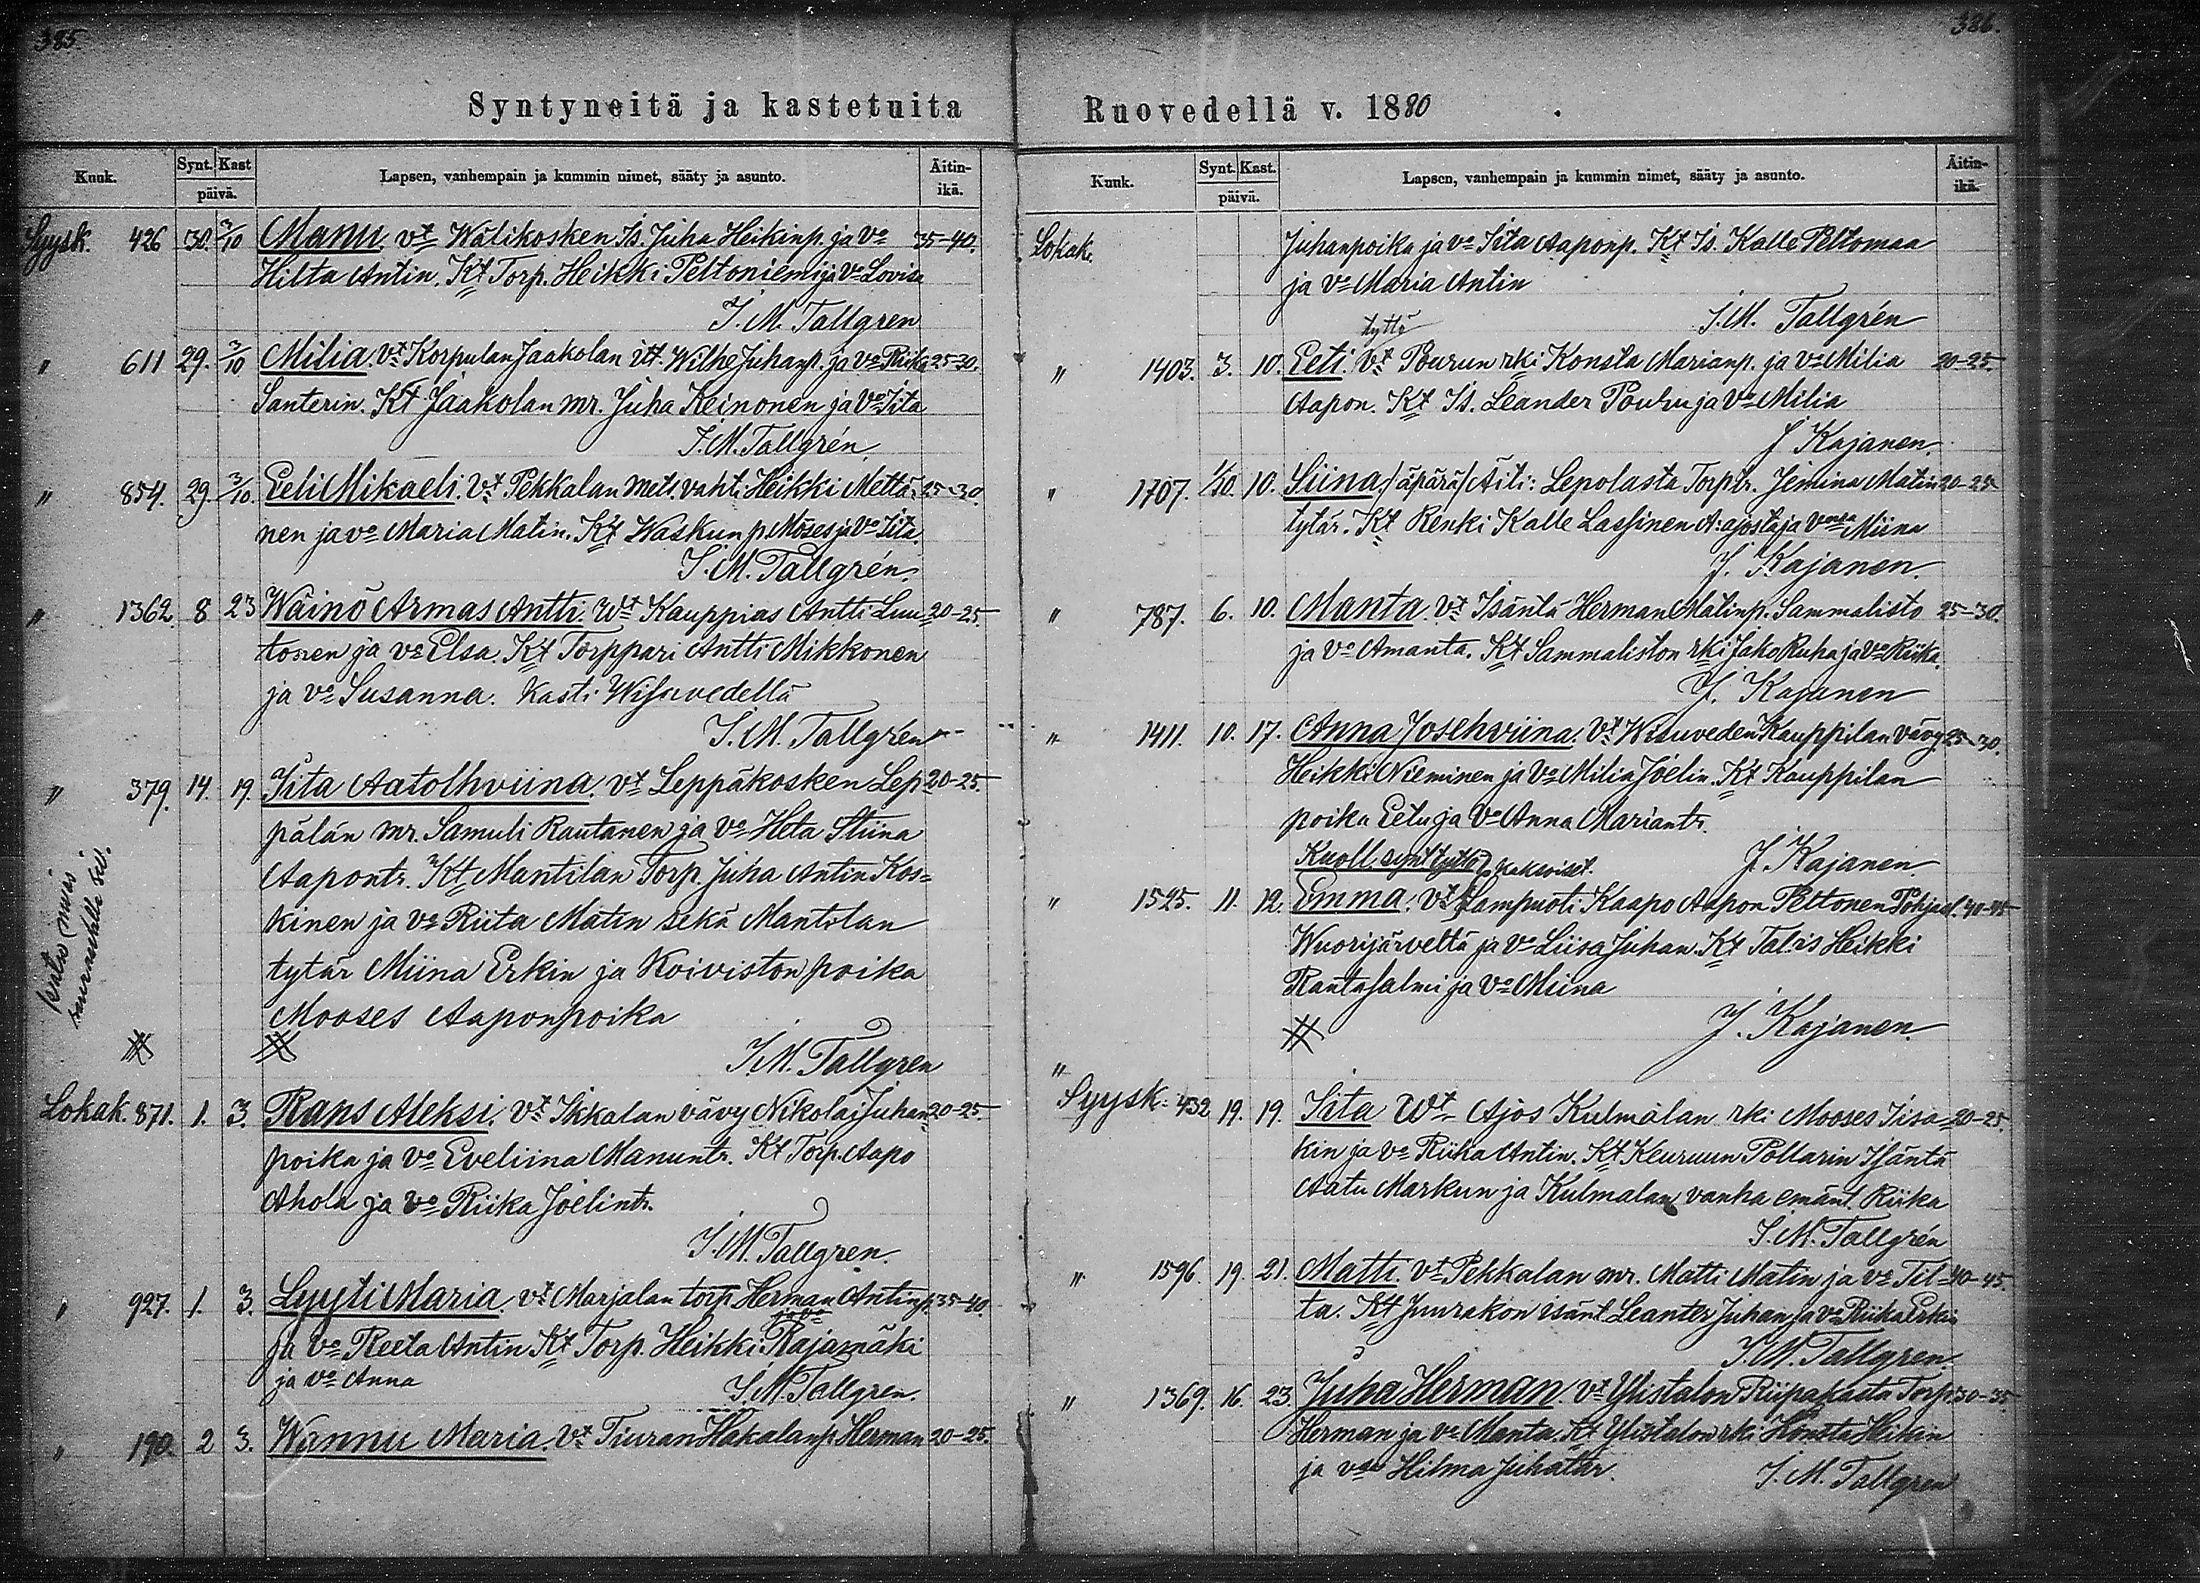 385
Syntyneitä ja kastetuita
Kuuk.
Synt. Kast
päivä.
Lapsen, vanhempain ja kummin nimet, sääty ja asunto.
Äitin-
ikä.
Syysk. 426 30. 3/10 Manu. vt Wälikosken Is. Juha Heikinp. ja vo 35-40.
Hilta Antin. Kt Torp. Heikki Peltoniemi ja Vo Lovisa
I. M. Tallgren
" 611 29. 3/10 Milia. vt Korpulan Jaakolan itt. Wilhe Juhanp. ja vo Riika 25-30.
Santerin. Kt Jaakolan mr. Juha Keinonen ja Vo Iita
I. M. Tallgrén.
" 854. 29. 3/10. Eeli Mikaeli. Vt Pekkalan mets. vahti Heikki Mettä- 25-30.
nen ja vo Maria Matin. Kt Waskun p. Moses ja Vo Iita.
I. M. Tallgrén.
" 1362. 8 23 Wäinö Armas Antti. Wt Kauppias Antti Luu- 20-25.
tonen ja vo Elsa. Kt Torppari Antti Mikkonen
ja vo Susanna. Kasti Wisuvedellä
I. M. Tallgrén
" 379. 14. 19. Iita Aatolhviina. vt Leppäkosken Lep- 20-25.
pälän mr. Samuli Rautanen ja Vo Heta Stiina
Aapontr. Kt Mantilan Torp. Juha Antin Kos-
kinen ja vo Riita Matin sekä Mantilan
tytär Miina Erkin ja Koiviston poika
Mooses Aaponpoika
I. M. Tallgren
katso muist
Lokak. 871. 1. 3. Rans Aleksi. vt Ikkalan vävy Nikolai Juhan- 20-25.
poika ja vo Eveliina Manuntr. Kt Torp. Aapo
Ahola ja vo Riika Joelintr.
I. M. Tallgren.
" 927. 1. 3. Lyyti Maria. vt Marjalan torp. Herman Antinp. 35-40.
ja vo Reeta Antin Kt Torp. Heikki Rajamäki
ja vo Anna
I. M. Tallgren.
" 190. 2 3. Wannu Maria. Vt Tiuran Hakalan p. Herman 20-25.
386.
Ruovedellä v. 1880
Kuuk.
Synt. Kast.
päivä.
Lapsen, vanhempain ja kummin nimet, sääty ja asunto.
Äitin-
ikä.
Lokak. Juhanpoika ja vo Iita Aaponp. Kt Is. Kalle Peltomaa
ja Vo Maria Antin
I. M. Tallgrén
tyttö
" 1403. 3. 10. Eeti. Vt Pourun rki Konsta Marianp. ja vo Milia 20-25.
Aapon. Kt Is. Leander Pouru ja Vo Milia
J Kajanen.
" 1707. 1/10. 10. Siina. /äpärä/ Äiti: Lepolasta Torp tr. Jemina Matin 20-25
tytär. Kt Renki Kalle Lassinen A:ajosta ja Miina
J. Kajanen.
" 787. 6. 10. Manta. Vt Isäntä Herman Matinp. Sammalisto 25-30.
ja Vo Amanta. Kt Sammaliston rki Jako Ruha ja Vo Riika.
J. Kajanen
" 1411. 10. 17. Anna Josehviina. Vt Wisuveden Kauppilan vävy 25-30.
Heikki Nieminen ja Vo Milia Joelin. Kt Kauppilan
poika Eetu ja Vo Anna Mariantr.
J. Kajanen.
Kuoll. synt tyttö kaksoiset.
" 1595. 11. 12. Emma. Vt Lampuoti Kaapo Aapon Peltonen Pohjasl. 40-45
Wuorijärveltä ja vo Liisa Juhan. Kt Tal:is Heikki
Rantasalmi ja Vo Miina
J. Kajanen.
"
Syysk. 432 19. 19. Iita Wt Ajos Kulmalan rki Mooses Iisa- 20-25.
kin ja vo Riika Antin. Kt Keuruun Pollarin Isäntä
Aatu Markun ja Kulmalan vanha emänt. Riika
I. M. Tallgrén
" 1596. 19. 21. Matti. vt Pekkalan mr. Matti Matin ja vo Til- 40-45.
ta. Kt Juurakon isänt Leanter Juhan ja vo Riika Erkin
I. M. Tallgren.
" 1369. 16. 23. Juha Herman. vt Ylistalon Riipakasta Torp. 30-35
Herman ja vo Manta. Kt Ylistalon rki Konsta Heikin
ja Hilma Juhatär.
I. M. Tallgren